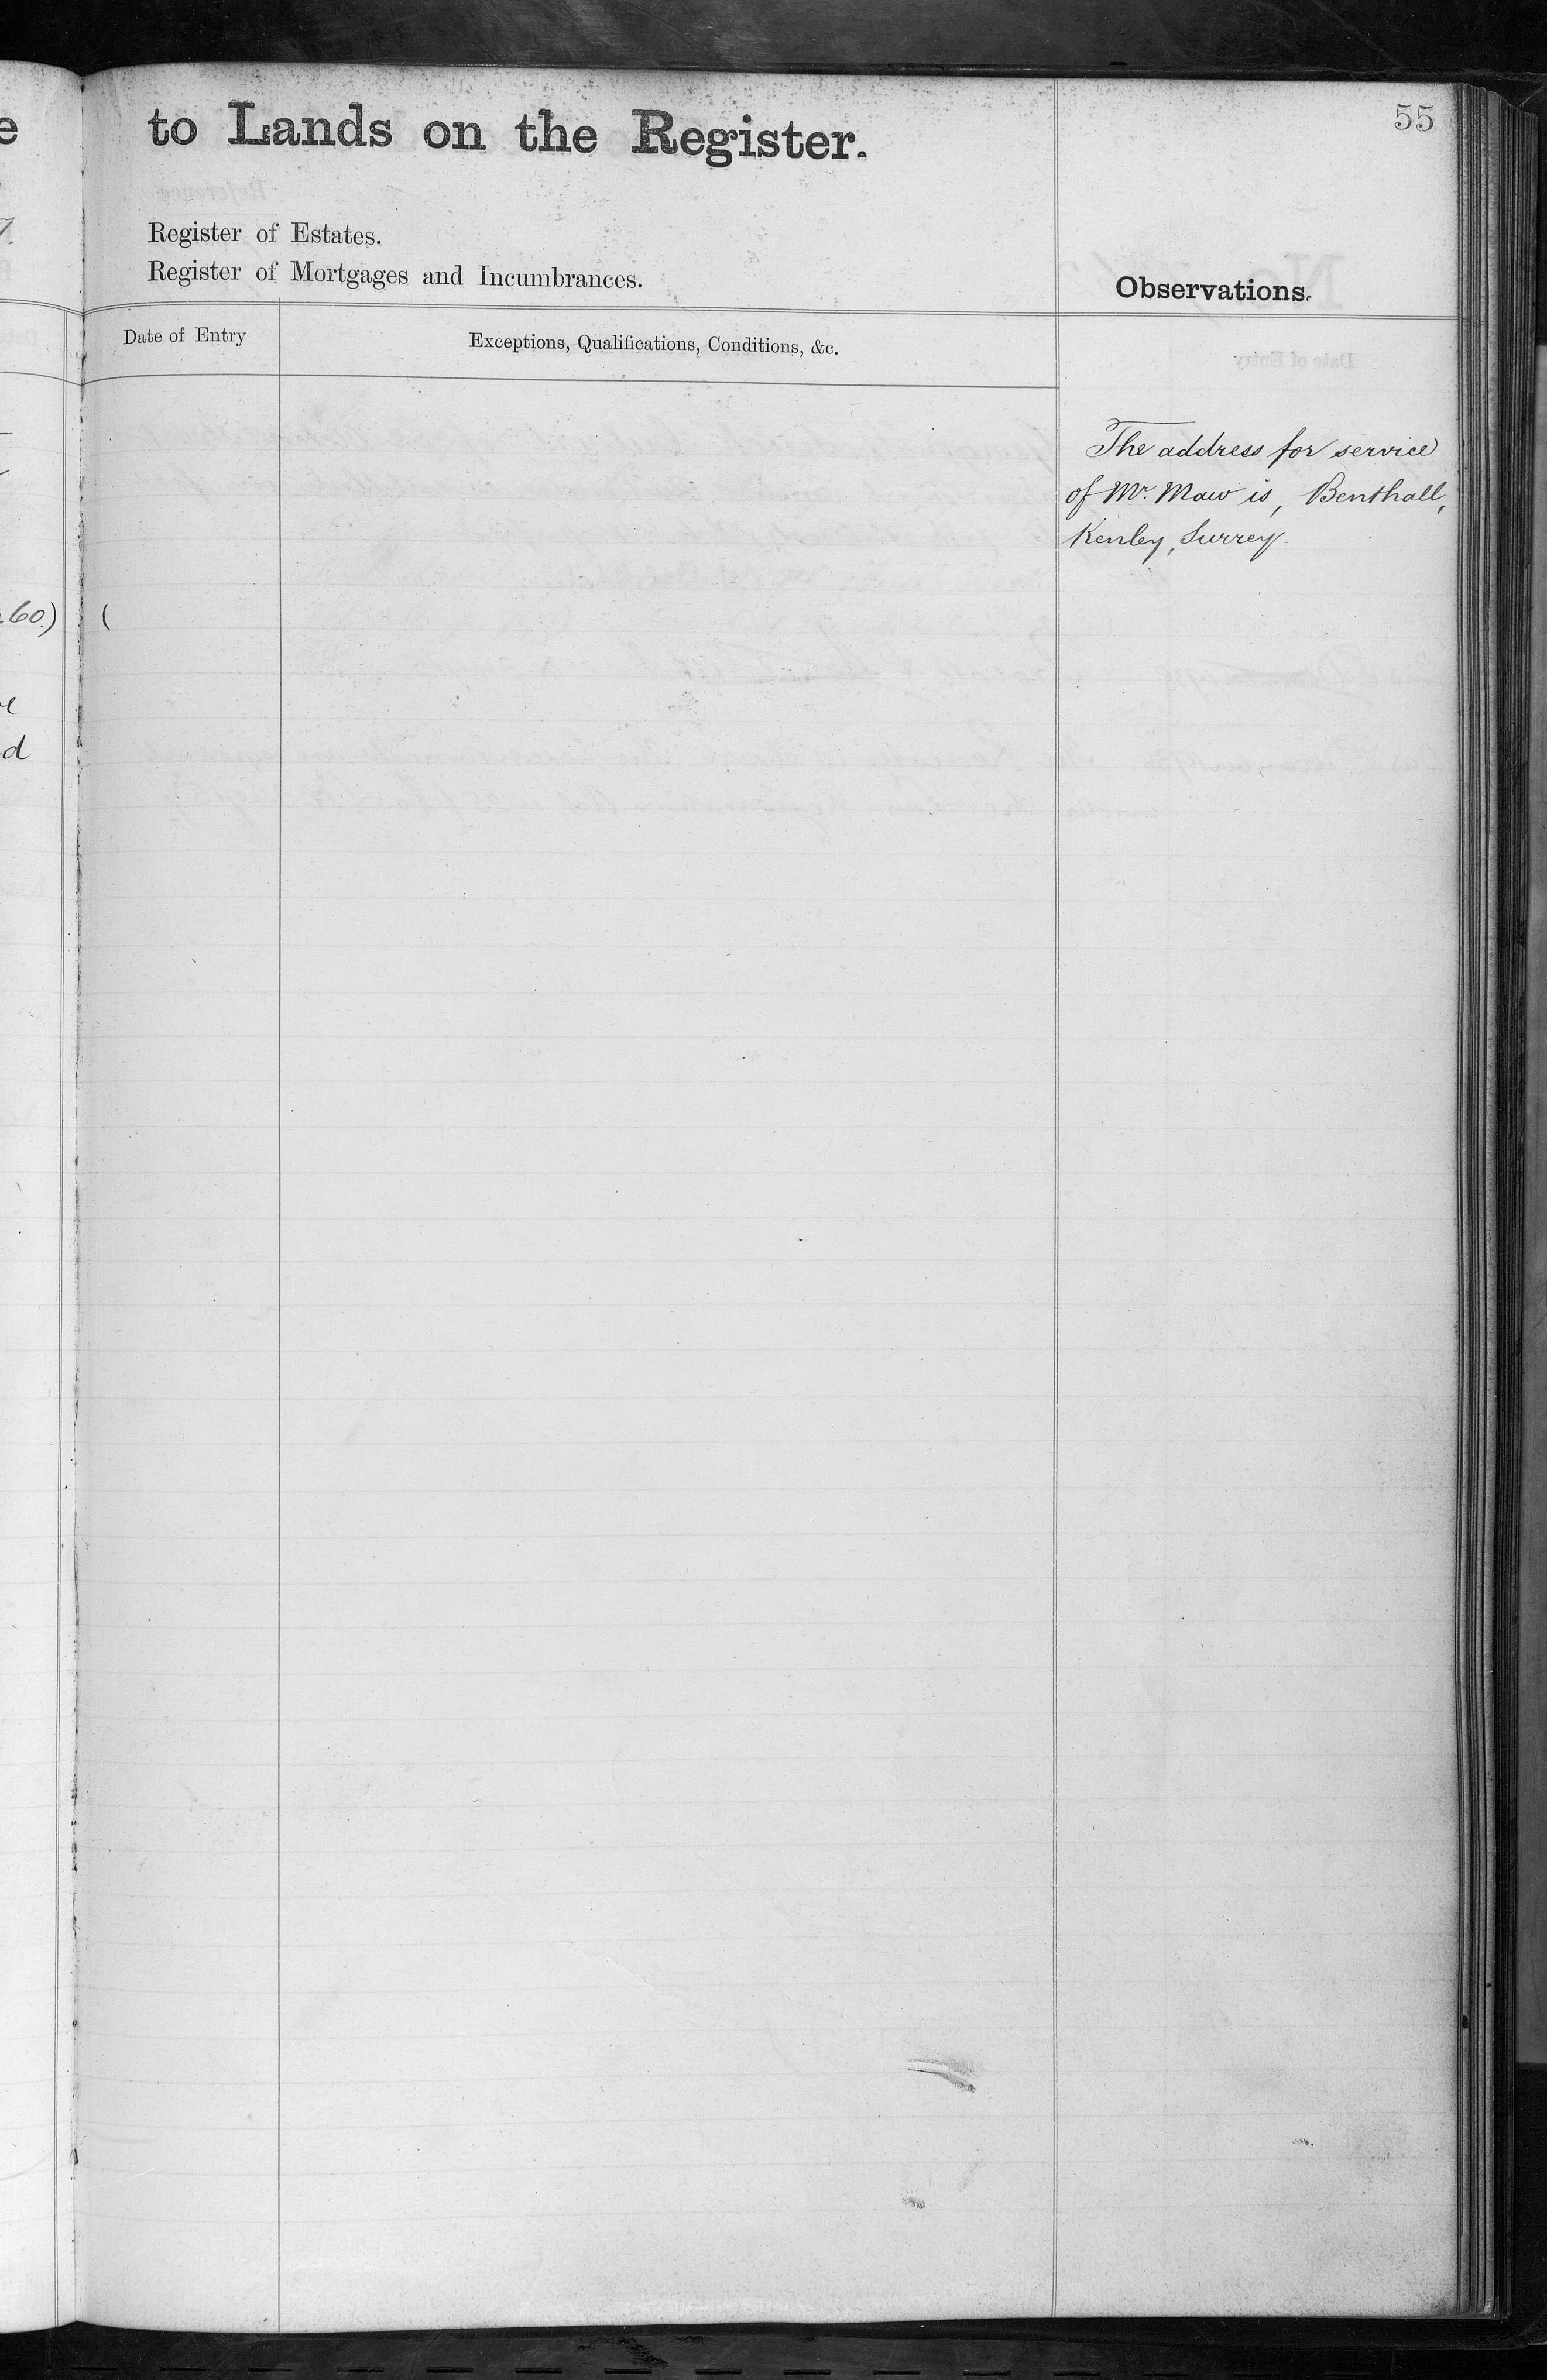 55
to Lands on the Register.
Register of Estates.
Register of Mortgages and Incumbrances.
Observations.
Date of Entry
Exceptions, Qualifications, Conditions, &c.
The address for service
of Mr. Maw is, Benthall,
Kenley, Surrey.
60.) (